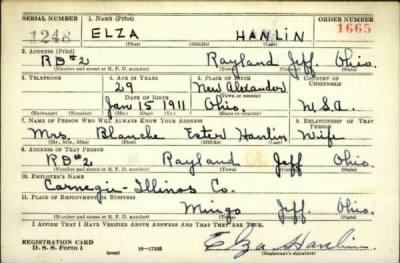 SERIAL NUMBER 1. NAME (Print) ORDER NUMBER
1248 ELZA HANLIN 1665
(First) (Middle) (Last)
2. ADDRESS (Print)
RD#2 Rayland Jeff. Ohio.
(Number and street or R. F. D. number) (Town) (County) (State)
3. TELEPHONE 4. AGE IN YEARS 5. PLACE OF BIRTH 6. COUNTRY OF CITIZENSHIP
29 New Alexander
DATE OF BIRTH (Town or county)
Jan 15 1911 Ohio. U.S.A.
(Exchange) (Number) (Mo.) (Day) (Yr.) (State or country)
7. NAME OF PERSON WHO WILL ALWAYS KNOW YOUR ADDRESS 8. RELATIONSHIP OF THAT PERSON
Mrs. Blanche Ester Hanlin Wife
(Mr., Mrs., Miss) (First) (Middle) (Last)
9. ADDRESS OF THAT PERSON
RD#2 Rayland Jeff Ohio.
(Number and street or R. F. D. number) (Town) (County) (State)
10. EMPLOYER'S NAME
Carnegie-Illinos Co.
11. PLACE OF EMPLOYMENT OR BUSINESS
Mingo Jeff. Ohio.
(Number and street or R. F. D. number) (Town) (County) (State)
I AFFIRM THAT I HAVE VERIFIED ABOVE ANSWERS AND THAT THEY ARE TRUE.
REGISTRATION CARD
D. S. S. Form 1 (over) 16—17105 Elza Hanlin.
(Registrant's signature)